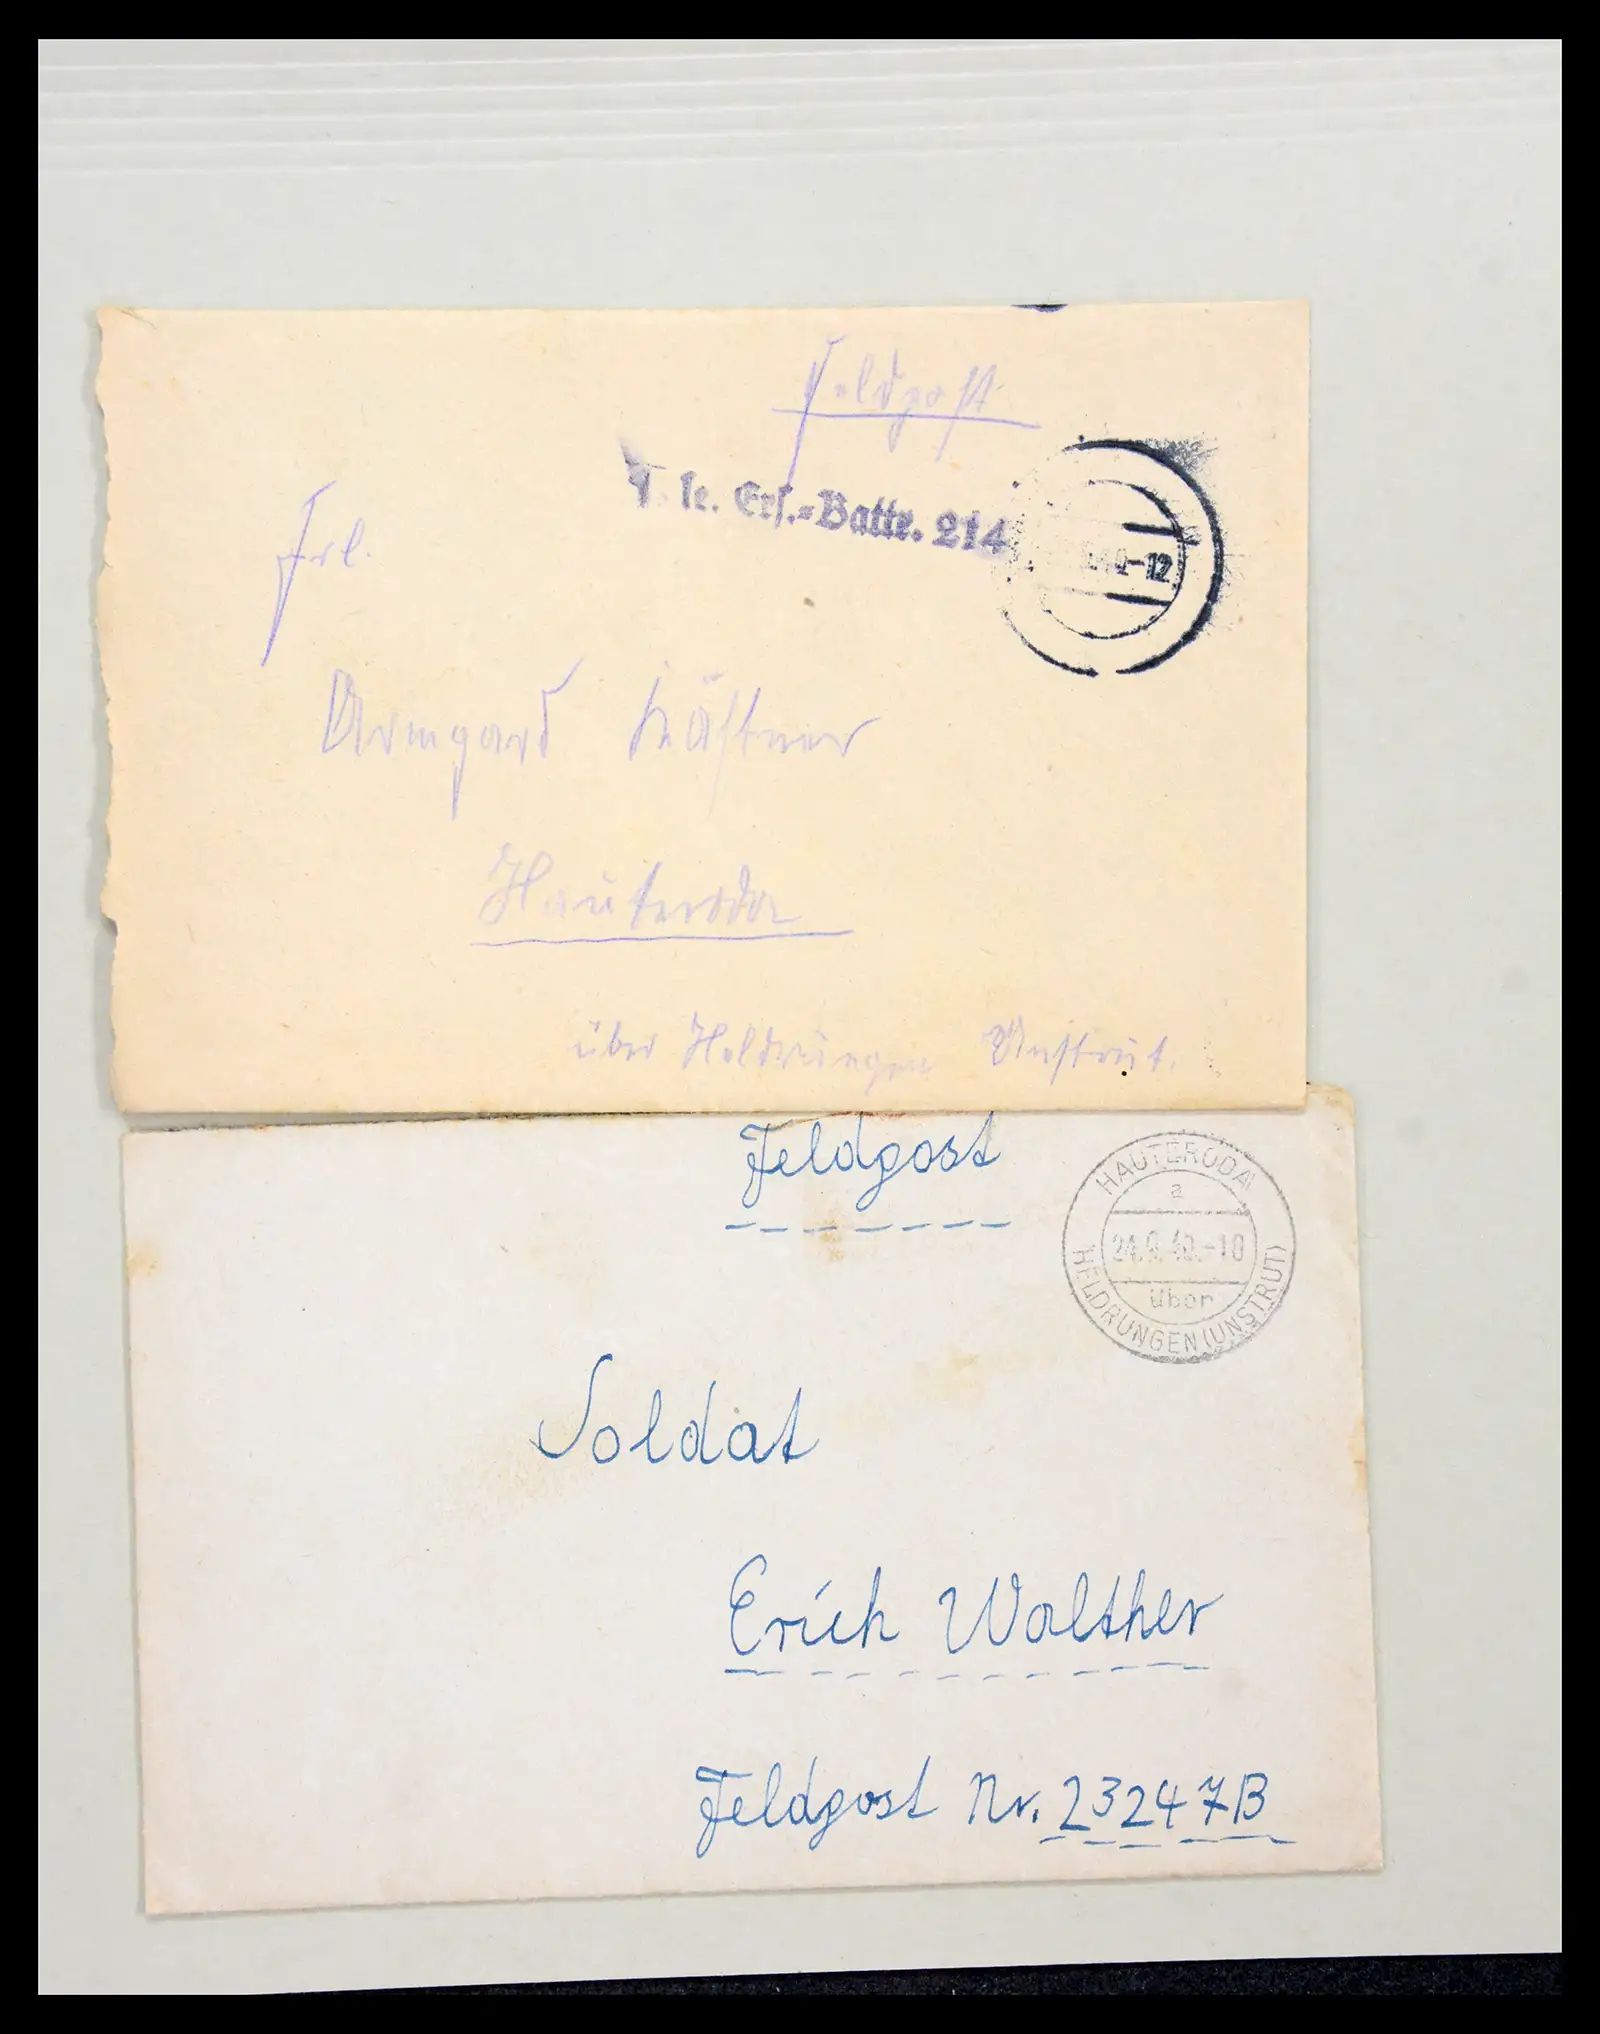 Feldpost
le. Ers.=Battr. 214
-12
Frl.
Armgard Kästner
Hauteroda
über Heldrungen Unstrut.
Feldpost
HAUTERODA
a
24.9.40.-10
über
HELDRUNGEN (UNSTRUT)
Soldat
Erich Walther
Feldpost Nr. 23247B